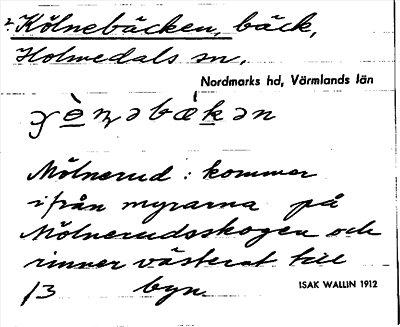 2. Kölnebäcken, bäck,
Holmedals sn.
Nordmarks hd, Värmlands län
Mölnerud: kommer
ifrån myrarna på
Mölnerudsskogen och
rinner västerut till
13 byn.
ISAK WALLIN 1912